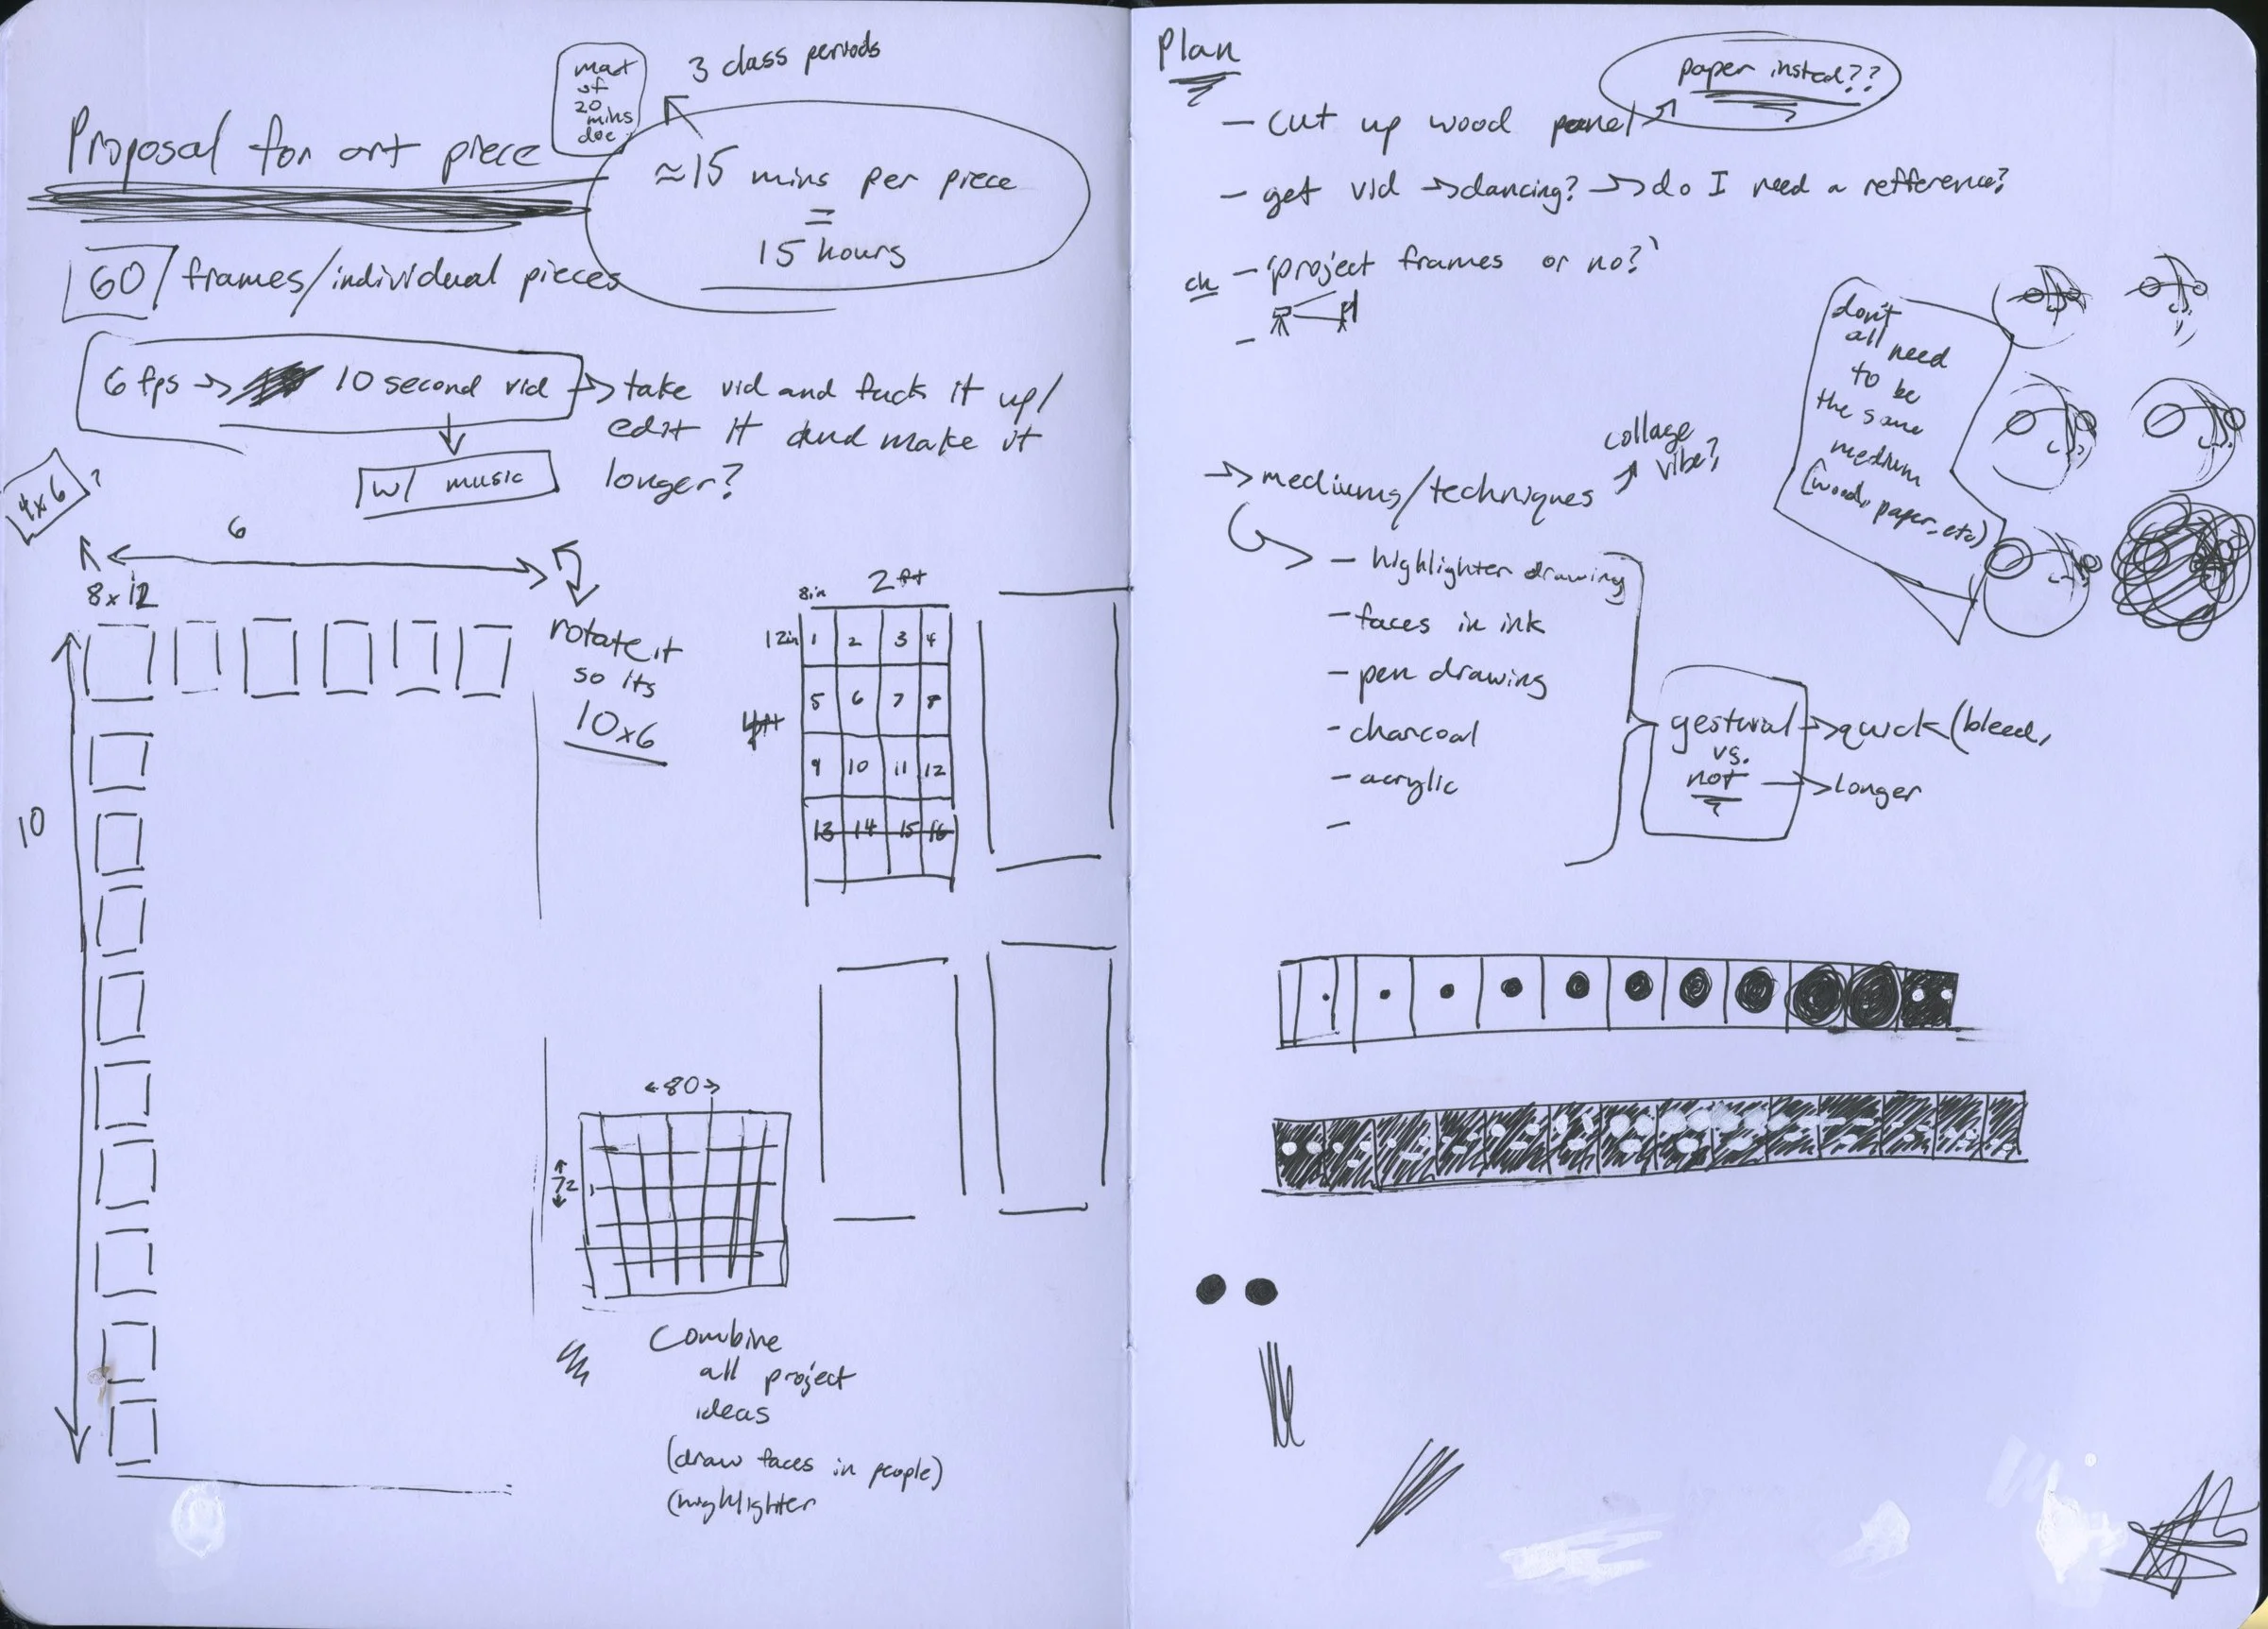 Proposal for art piece
max
of
20
mins
doe
3 class periods
≈15 mins per piece
=
15 hours
60 / frames/individual pieces
6 fps → 10 second vid → take vid and fuck it up/
edit it and make it
longer?
w/ music
4x6?
6
8x12
10
rotate it
so its
10x6
2 ft
8in
12in
1 2 3 4
5 6 7 8
9 10 11 12
13 14 15 16
4ft
←80→
72
Combine
all project
ideas
(draw faces in people)
(highlighter
Plan
paper insted??
- cut up wood panel
- get vid → dancing? → do I need a refference?
- 'project frames or no?'
-
don't
all need
to be
the same
medium
(wood, paper, etc)
collage
vibe?
→ mediums/techniques
- highlighter drawing
- faces in ink
- pen drawing
- charcoal
- acrylic
-
gestural → quick (bleed,
vs.
not → longer